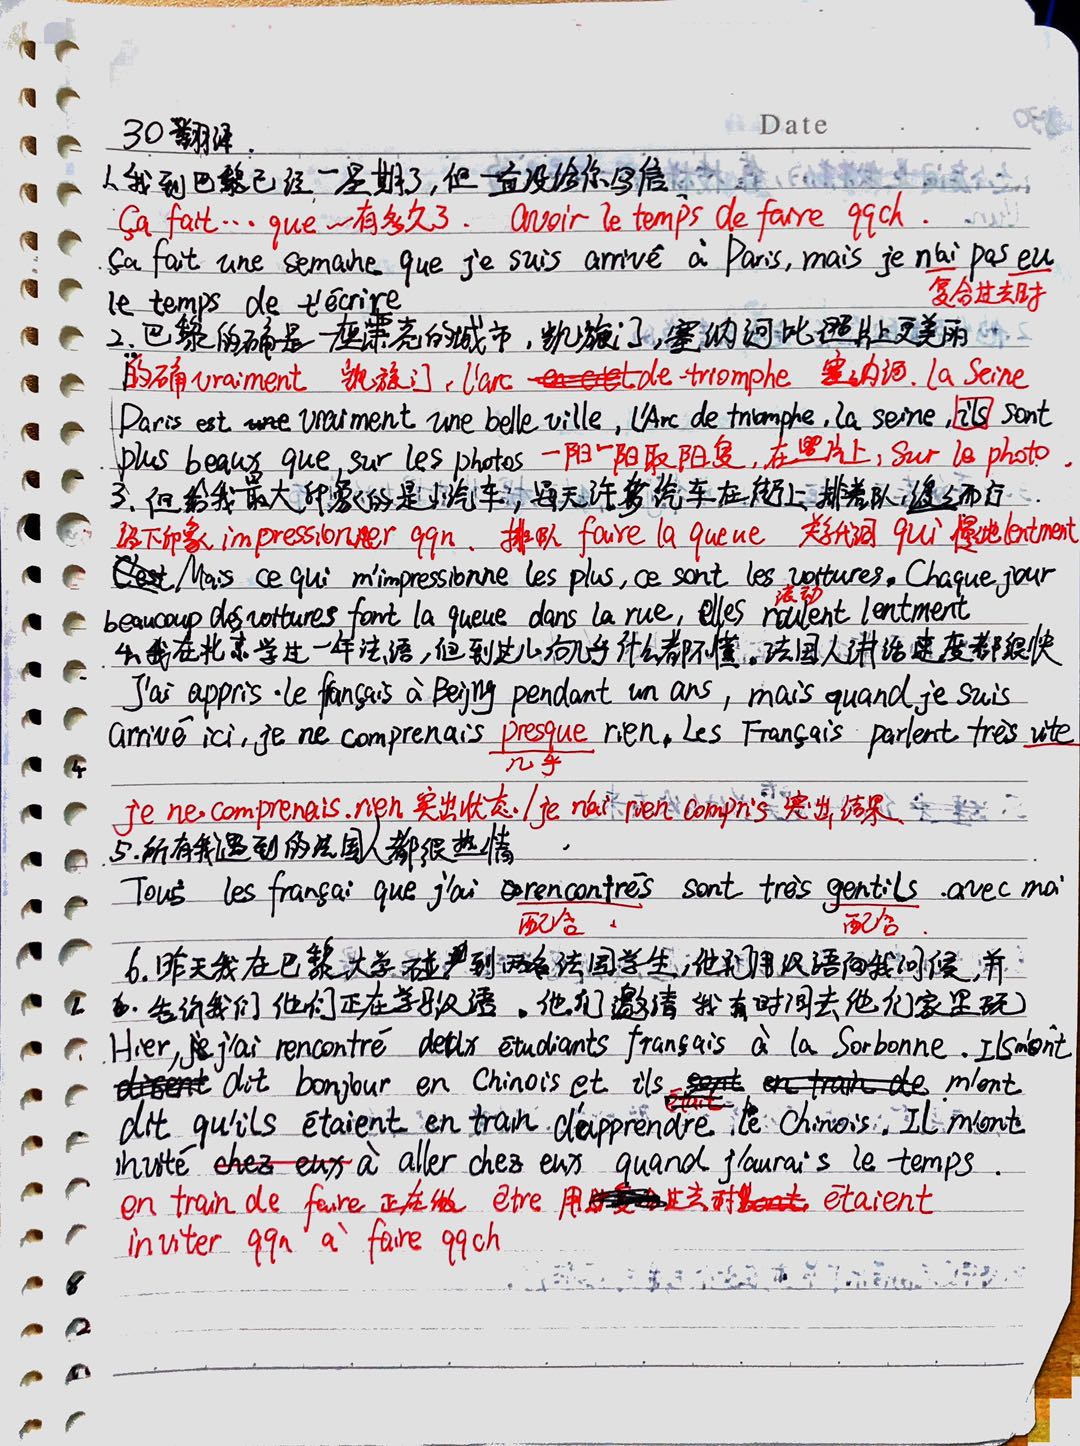 Date
30 翻译.
1. 我到巴黎已经一星期了,但一直没给你写信
Ça fait... que ~有多久了. avoir le temps de faire qqch.
Ça fait une semaine que je suis arrivé à Paris, mais je n'ai pas eu
复合过去时
le temps de t'écrire
2. 巴黎的确是一座漂亮的城市,凯旋门,塞纳河比照片上更美丽
的确 vraiment 凯旋门, l'arc de triomphe 塞纳河. la Seine
Paris est vraiment une belle ville, l'Arc de triomphe, la seine, ils sont
plus beaux que sur les photos 一阴一阳取阳复, 在照片上, Sur la photo.
3. 但给我最大印象的是小汽车,每天许多汽车在街上排着队缓缓而行.
留下印象 impressionner qqn. 排队 faire la queue 关系代词 qui 慢地 lentment
Mais ce qui m'impressionne les plus, ce sont les voitures. Chaque jour
流动
beaucoup des voitures font la queue dans la rue, elles roulent lentment
4. 我在北京学过一年法语,但到这儿问几乎什么都不懂. 法国人讲话速度都很快
J'ai appris le français à Beijng pendant un ans, mais quand je suis
arrivé ici, je ne comprenais presque rien. Les Français parlent très vite
几乎
je ne comprenais rien 突出状态. / je n'ai rien compris 突出结果
5. 所有我遇到的法国人都很热情
Tous les françai que j'ai rencontrés sont très gentils avec moi
配合 配合.
6. 昨天我在巴黎大学碰到两名法国学生,他们用汉语向我问候,并
告诉我们他们正在学习汉语. 他们邀请我有时间去他们家里玩
Hier, j'ai rencontré deux étudiants français à la Sorbonne. Ils m'ont
dit bonjour en Chinois et ils m'ont
dit qu'ils étaient en train d'apprendre le Chinois. Il m'ont
invité à aller chez eux quand j'aurais le temps.
en train de faire 正在做 être 用过去时 étaient
inviter qqn à faire qqch